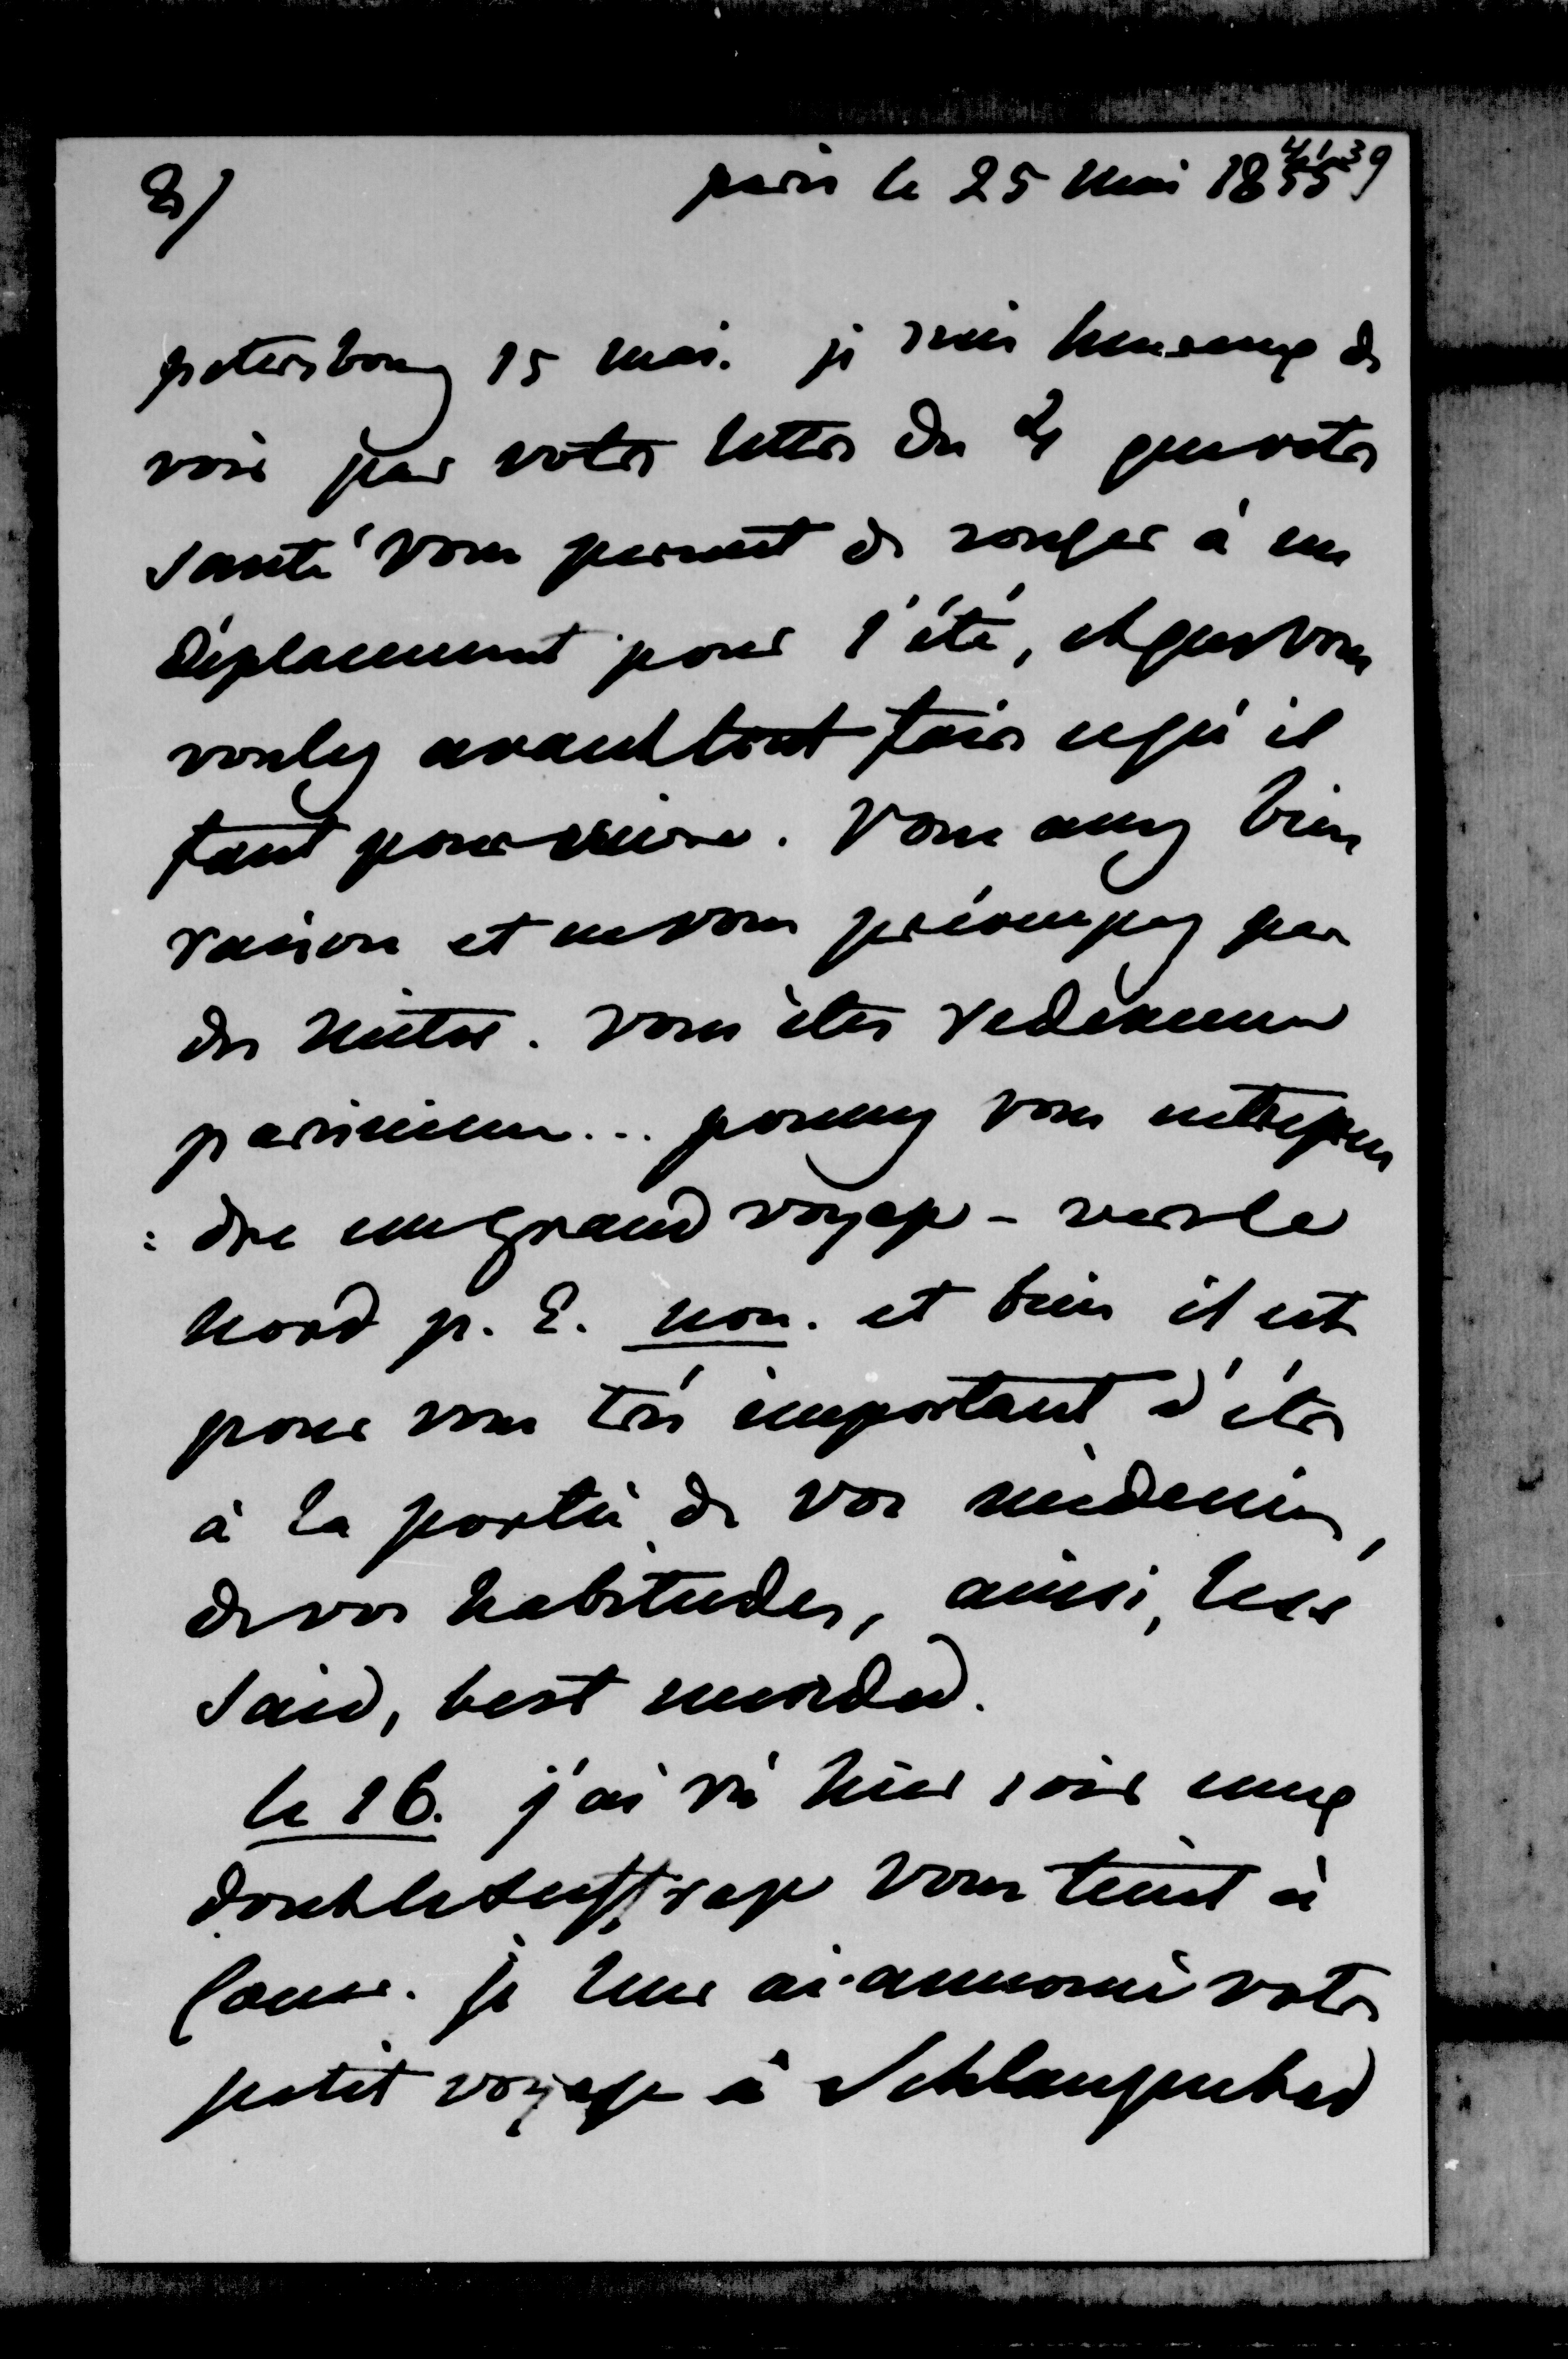 2/ paris le 25 mai 1855 4139
petersbourg 15 mai. je suis heureuse de
voir par votre lettre du 4 que votre
santé vous permet de songer à un
déplacement pour l'été, et que vous
voulez avant tout faire ce qu'il
faut pour vivre. Vous avez bien
raison et ne vous préoccupez pas
du reste. vous êtes redevenue
parisienne... pouvez vous entrepren
: dre un grand voyage – vers le
nord p. E. non. et bien il est
pour vous très important d'être
à la portée de vos médecins,
de vos habitudes, ainsi, less
said, best mended.
le 16. j'ai vu hier soir ceux
dont le suffrage vous tient à
coeur. je leur ai annoncé votre
petit voyage à Schlangenbad